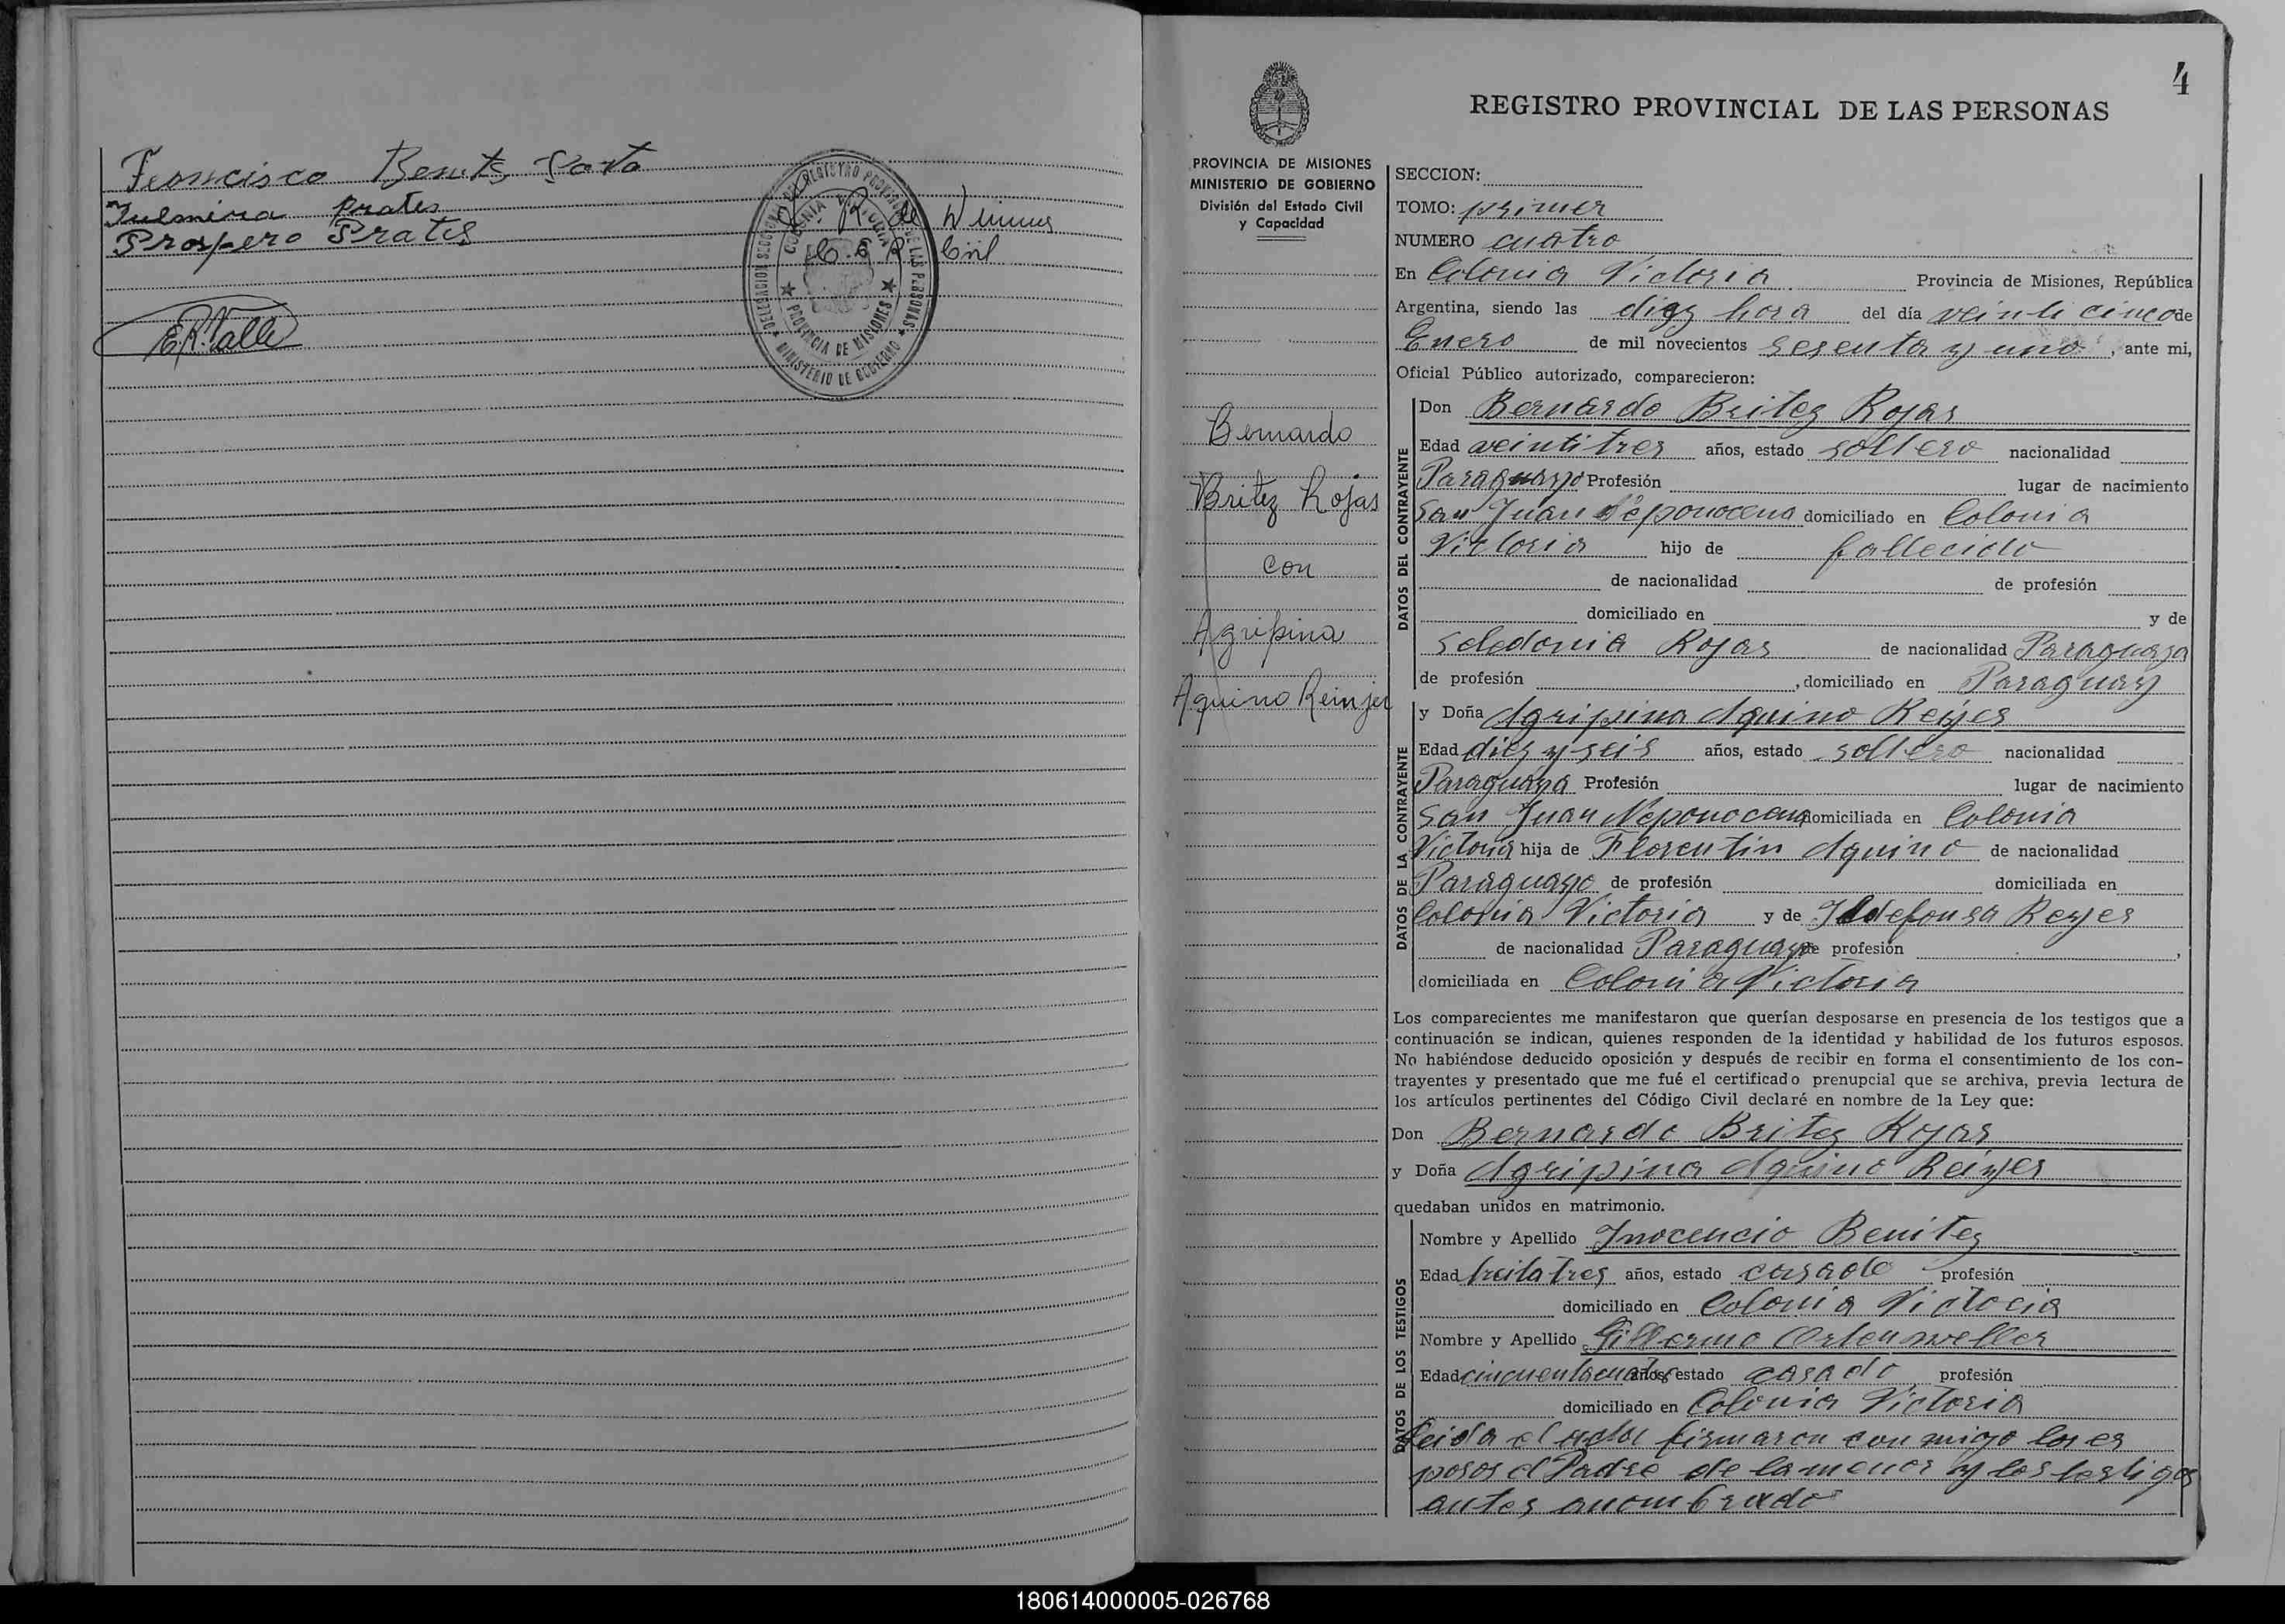 Francisco Benits
Prates
Prospero Prates
E.R. Valle
DELEGACION SECCION DEL REGISTRO PROVINCIAL DE LAS PERSONAS
COLONIA VICTORIA
★ PROVINCIA DE MISIONES ★
MINISTERIO DE GOBIERNO
4
REGISTRO PROVINCIAL DE LAS PERSONAS
PROVINCIA DE MISIONES
MINISTERIO DE GOBIERNO
División del Estado Civil
y Capacidad
Bernardo
Britez Rojas
con
Agripina
Aquino Reinjer
SECCION:
TOMO: primer
NUMERO cuatro
En Colonia Victoria Provincia de Misiones, República
Argentina, siendo las diez hora del día veinti cinco de
Enero de mil novecientos sesenta y uno, ante mi,
Oficial Público autorizado, comparecieron:
DATOS DEL CONTRAYENTE
Don Bernardo Britez Rojas
Edad veintitres años, estado soltero nacionalidad
Paraguayo Profesión lugar de nacimiento
San Juan Neponoceno domiciliado en Colonia
Victoria hijo de fallecido
de nacionalidad de profesión
domiciliado en y de
Seledonia Rojas de nacionalidad Paraguaya
de profesión , domiciliado en Paraguay
DATOS DE LA CONTRAYENTE
y Doña Agripina Aquino Reijes
Edad diez y seis años, estado soltero nacionalidad
Paraguaya Profesión lugar de nacimiento
San Juan Neponoceno domiciliada en Colonia
Victoria hija de Florentin Aquino de nacionalidad
Paraguayo de profesión domiciliada en
Colonia Victoria y de Ildefonsa Reyes
de nacionalidad Paraguaya de profesión ,
domiciliada en Colonia Victoria
Los comparecientes me manifestaron que querían desposarse en presencia de los testigos que a
continuación se indican, quienes responden de la identidad y habilidad de los futuros esposos.
No habiéndose deducido oposición y después de recibir en forma el consentimiento de los con-
trayentes y presentado que me fué el certificado prenupcial que se archiva, previa lectura de
los artículos pertinentes del Código Civil declaré en nombre de la Ley que:
Don Bernardo Britez Rojas
y Doña Agripina Aquino Reiyes
quedaban unidos en matrimonio.
DATOS DE LOS TESTIGOS
Nombre y Apellido Inocencio Benitez
Edad treitatres años, estado casado profesión
domiciliado en Colonia Victocia
Nombre y Apellido Gillermo Ortenweller
Edad cincuentacuatro años, estado casado profesión
domiciliado en Colonia Victoria
leida el acta firmaron con migo los es
posos el Padre de la menor y los testigos
antes anombrado
180614000005-026768